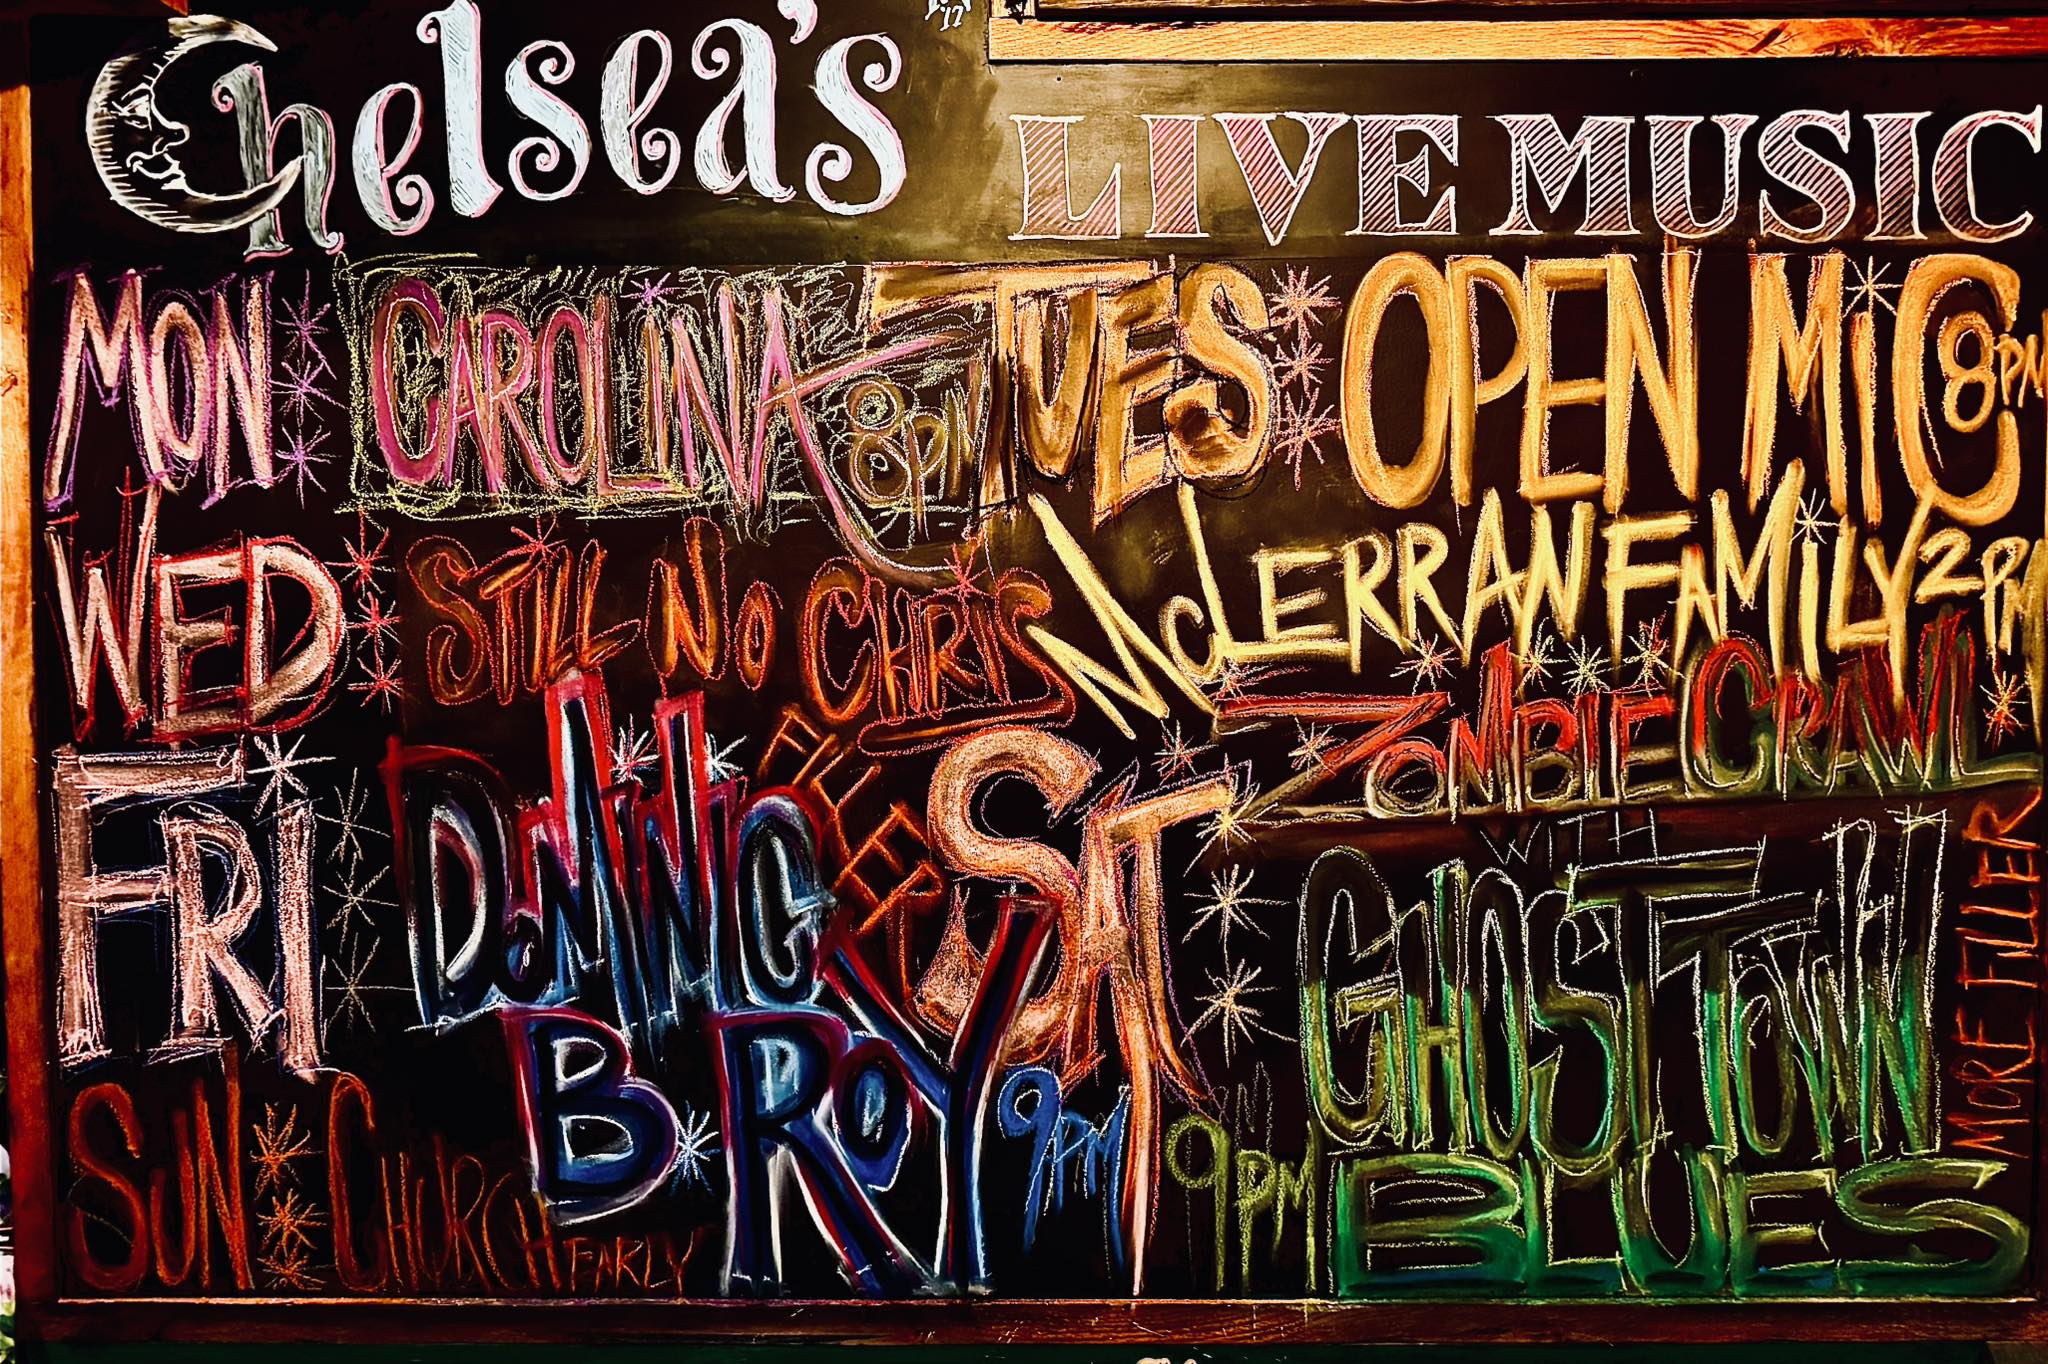 Chelsea's
'17
LIVE MUSIC
MON CAROLINA 8PM
TUES OPEN MiC 8PM
WED STILL NO CHRIS
McLERRAN FAMILY 2PM
ZOMBIE CRAWL
WITH
FRI DOMINIC B ROY 9PM
FILLER
SAT GHOST TOWN BLUES 9PM
MORE FILLER
SUN CHURCH EARLY